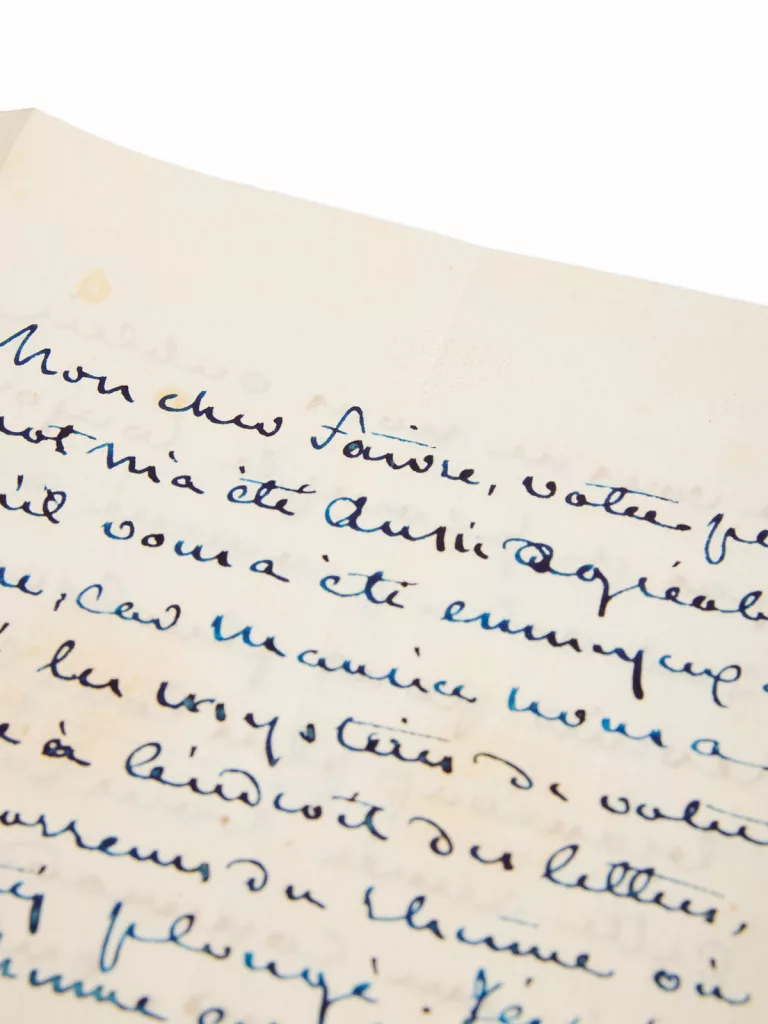 Mon cher Faivre, votre pe
mot m'a été aussi agréab
'il vous a été ennuyeux
car Maurice nous a
les mystères de votre
à l'endroit des lettres,
du rhume où
plongé.